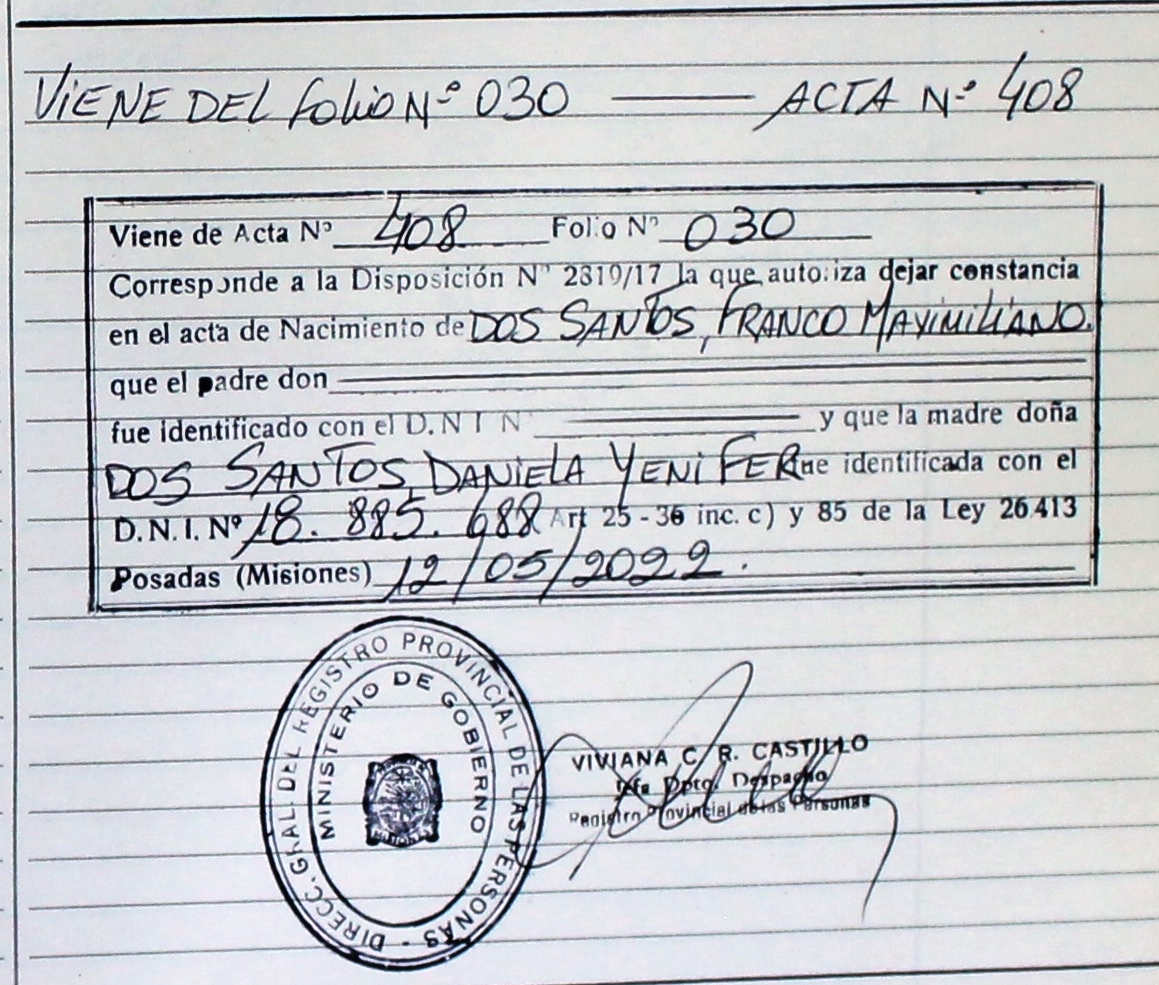 VIENE DEL folio Nº 030 ACTA Nº 408
Viene de Acta Nº 408 Folio Nº 030
Corresponde a la Disposición Nº 2319/17 la que autoriza dejar constancia
en el acta de Nacimiento de DOS SANTOS, FRANCO MAYIMILIANO.
que el padre don
fue identificado con el D.N I N y que la madre doña
DOS SANTOS, DANIELA YENIFER fue identificada con el
D.N.I. Nº 18.885.688 Art 25 - 36 inc. c) y 85 de la Ley 26.413
Posadas (Misiones) 12/05/2022.
DIRECC. GRAL. DEL REGISTRO PROVINCIAL DE LAS PERSONAS -
MINISTERIO DE GOBIERNO
VIVIANA C. R. CASTILLO
Jefa Dpto. Despacho
Registro Provincial de las Personas